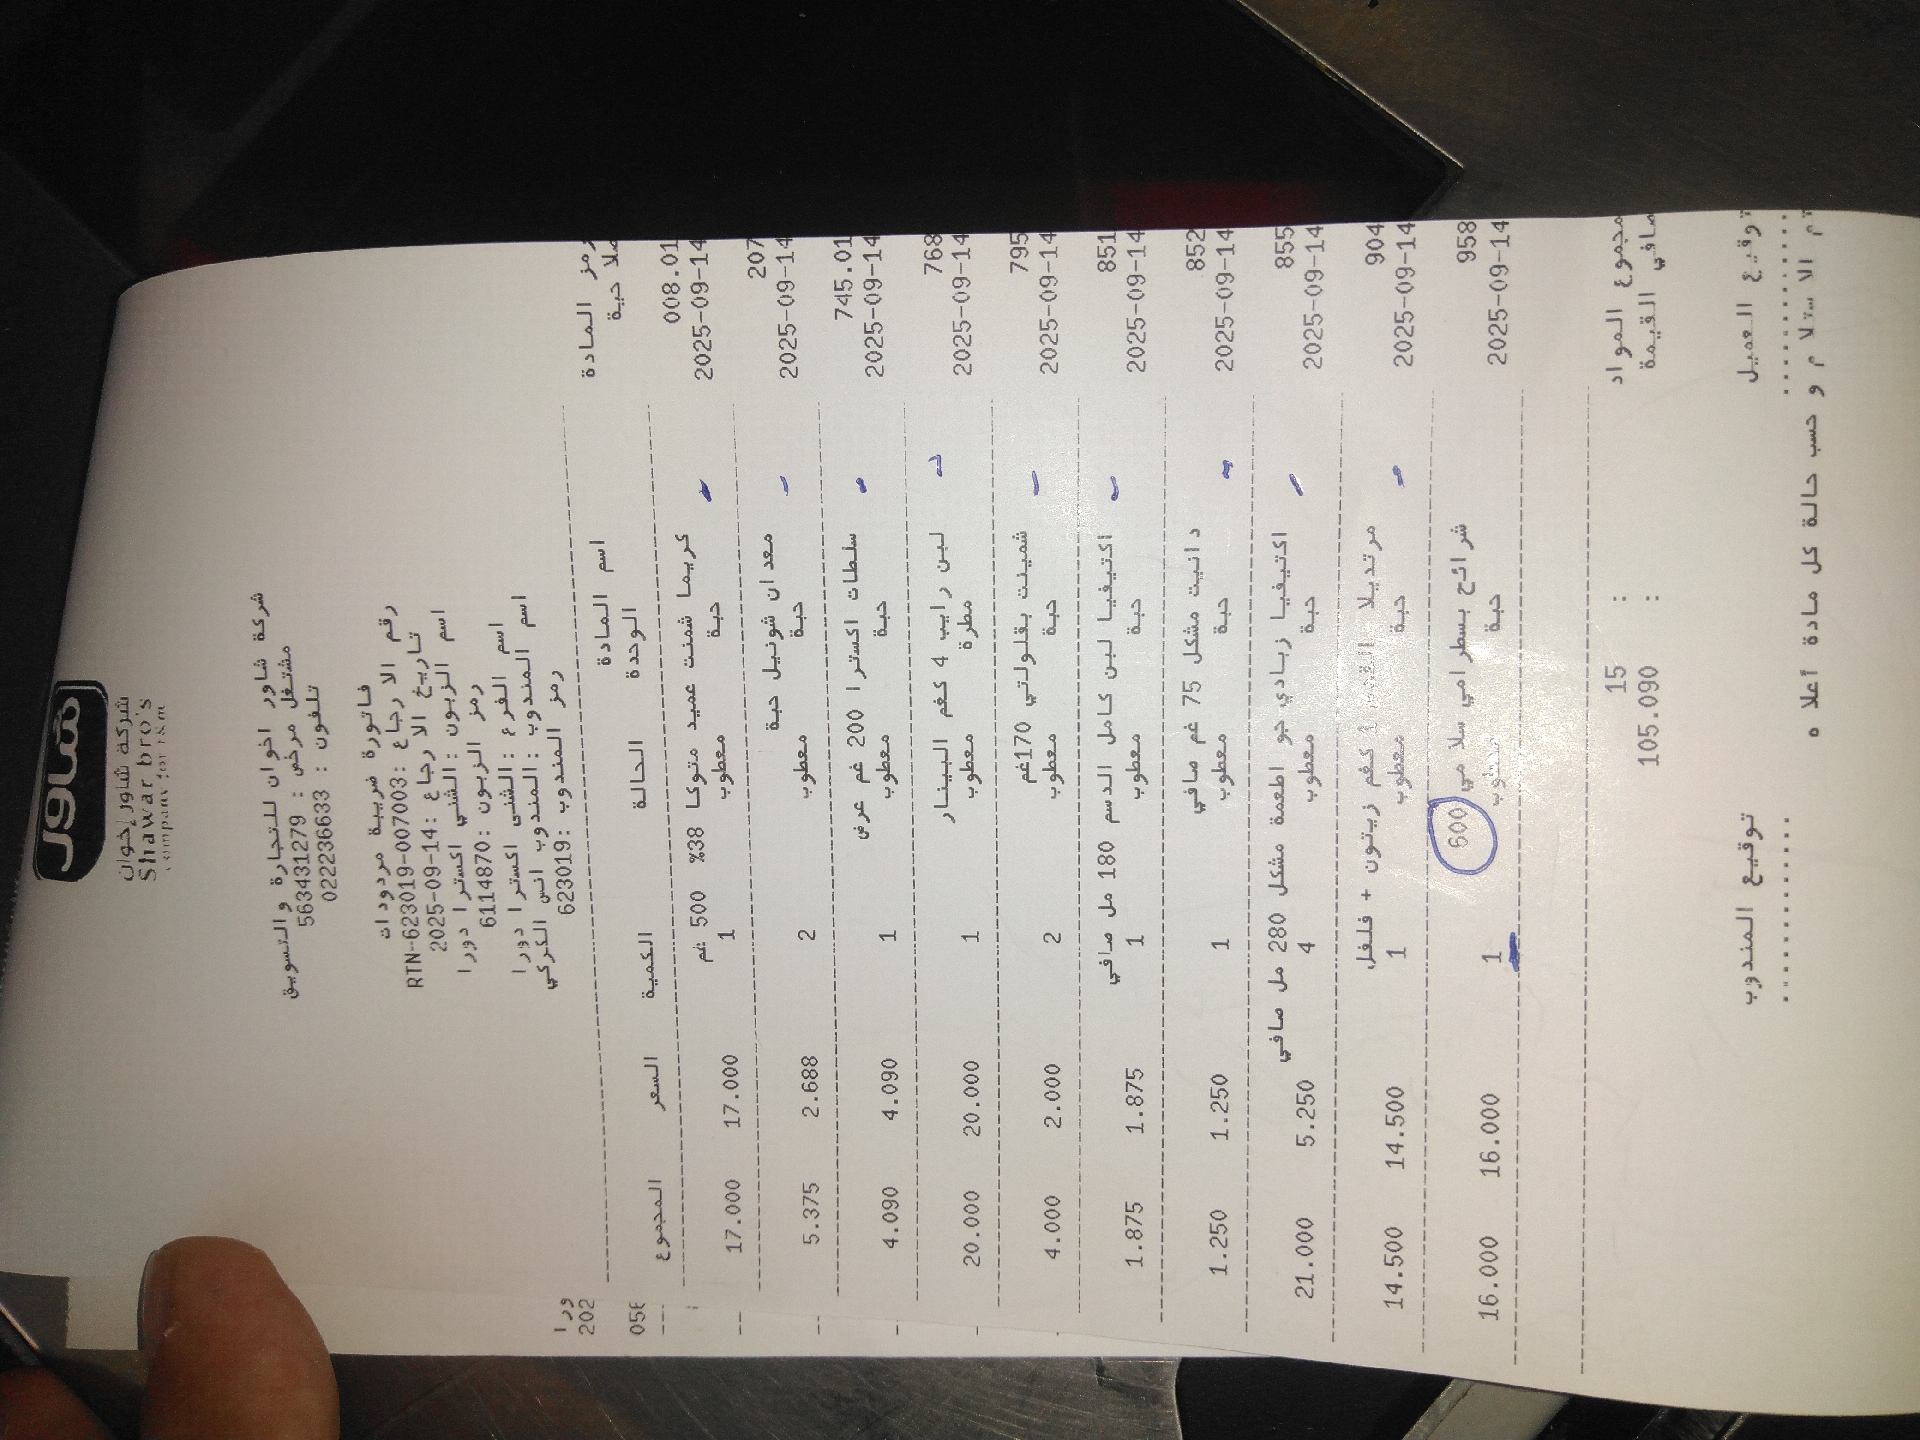 شاور
شركة شاور إخوان
Shawar bro's
شركة شاور اخوان للتجارة والتسويق
مشتغل مرخص : 563431279
تلفون : 022236633
فاتورة ضريبية مردودات
رقم الارجاع :RTN-623019-007003
تاريخ الارجاع :2025-09-14
اسم الزبون :الشني اكسترا دورا
رمز الزبون :6114870
اسم الفرع :الشني اكسترا دورا
اسم المندوب :المندوب انس الكركي
رمز المندوب :623019
رمز المادة اسم المادة
صلاحية الوحدة الحالة الكمية السعر المجموع
008.01 كريما شمنت عميد متوكا 38% 500 غم
2025-09-14 حبة معطوب 1 17.000 17.000
207 معدان شونيل حبة
2025-09-14 حبة معطوب 2 2.688 5.375
745.01 سلطات اكسترا 200 غم عرض
2025-09-14 حبة معطوب 1 4.090 4.090
768 لبن رايب 4 كغم البينار
2025-09-14 مطرة معطوب 1 20.000 20.000
795 شمينت بقلولتي 170غم
2025-09-14 حبة معطوب 2 2.000 4.000
851 اكتيفيا لبن كامل الدسم 180 مل صافي
2025-09-14 حبة معطوب 1 1.875 1.875
852 دانيت مشكل 75 غم صافي
2025-09-14 حبة معطوب 1 1.250 1.250
855 اكتيفيا زبادي جو اطعمة مشكل 280 مل صافي
2025-09-14 حبة معطوب 4 5.250 21.000
904 مرتديلا 1 كغم زيتون + فلفل
2025-09-14 حبة معطوب 1 14.500 14.500
958 شرائح بسطرامي سلامي 600
2025-09-14 حبة معطوب 1 16.000 16.000
مجموع المواد : 15
صافي القيمة : 105.090
توقيع العميل توقيع المندوب
................ ................
تم الاستلام و حسب حالة كل مادة أعلاه .
ورا
202
056